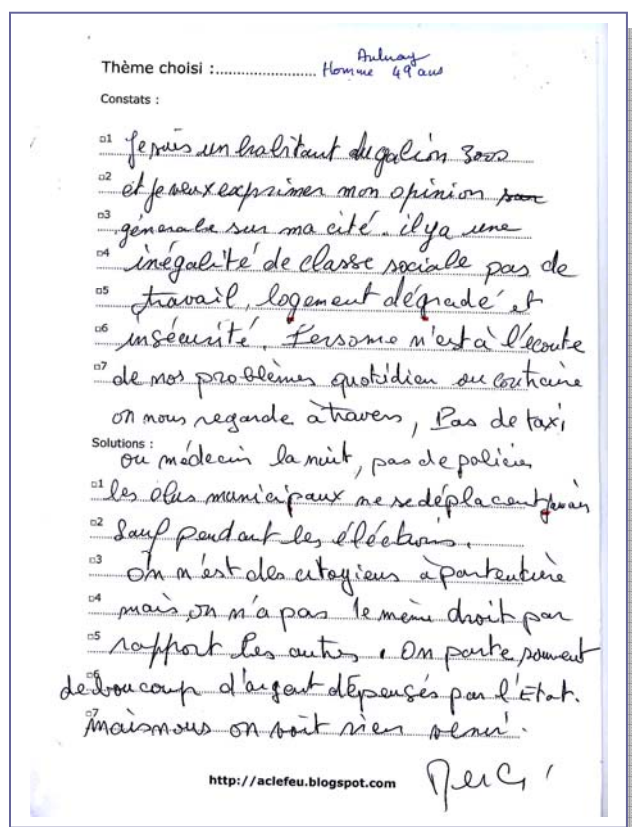 Aulnay
Thème choisi :........................ Homme 49 ans
Constats :
1 Je suis un habitant du galion 3000
2 et je veux exprimer mon opinion sur
3 génerale sur ma cité. il y a une
4 inégalité de classe sociale pas de
5 travail, logement dégradé et
6 insécurité. Personne n'est à l'écoute
7 de nos problèmes quotidien au contraire
on nous regarde à travers, Pas de taxi
Solutions :
ou médecin la nuit, pas de policier
1 les élus municipaux ne se déplacent jamais
2 Sauf pendant les éléctions.
3 On n'est des citoyiens à partentière
4 mais on n'a pas le même droit par
5 rapport les autres. On parle souvent
6 de boucoup d'argent dépensés par l'Etat.
7 Mais nous on voit rien venir.
Merci
http://aclefeu.blogspot.com